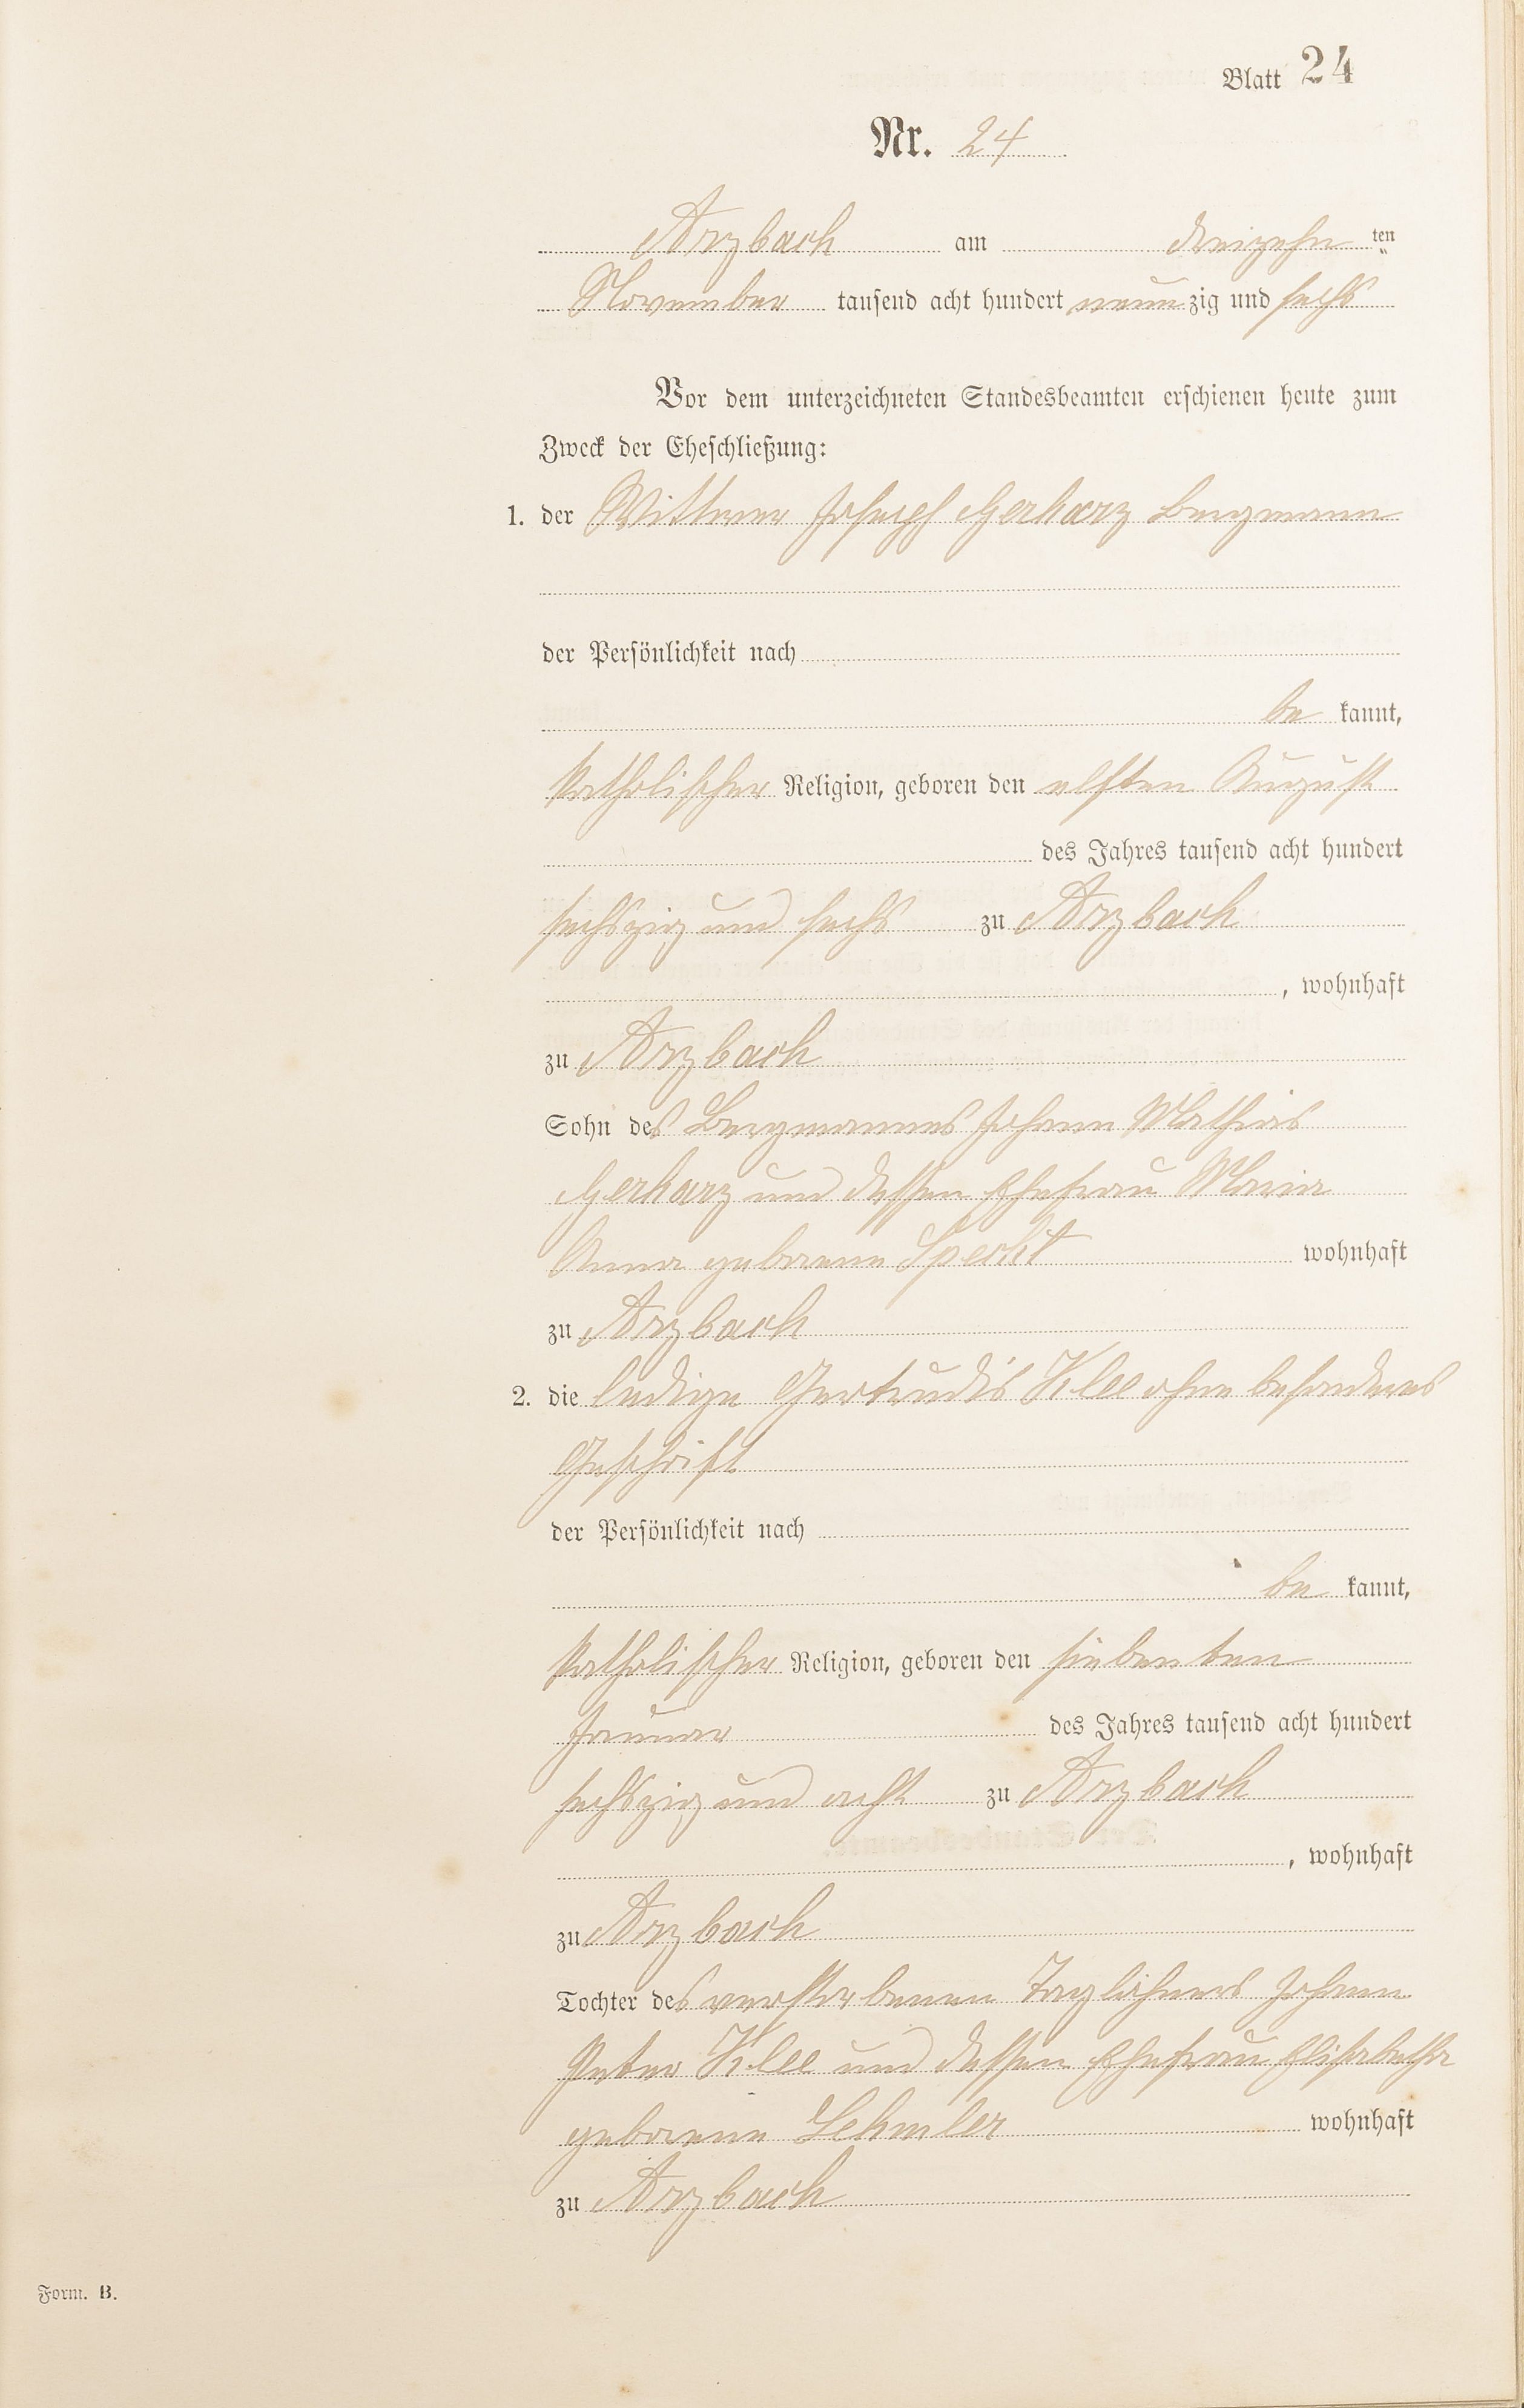 Blatt 24
Nr. 24
Arzbach am dreizehn ten
November tausend acht hundert neun zig und sechs
Vor dem unterzeichneten Standesbeamten erschienen heute zum
Zweck der Eheschließung:
1. der Wittwer Joseph Gerharz Bergmann
der Persönlichkeit nach
be kannt,
katholischer Religion, geboren den elften August
des Jahres tausend acht hundert
sechszig und sechs zu Arzbach
, wohnhaft
zu Arzbach
Sohn des Bergmannes Johann Mathias
Gerharz und dessen Ehefrau Maria
Anna geborene Specht wohnhaft
zu Arzbach
2. die ledige Gertrudis Klee ohne besonderes
Geschäft
der Persönlichkeit nach
be kannt,
katholischer Religion, geboren den siebenten
Januar des Jahres tausend acht hundert
sechszig und acht zu Arzbach
, wohnhaft
zu Arzbach
Tochter des verstorbenen Taglöhners Johann
Peter Klee und dessen Ehefrau Elisabetha
geborene Lehmler wohnhaft
zu Arzbach
Form. B.